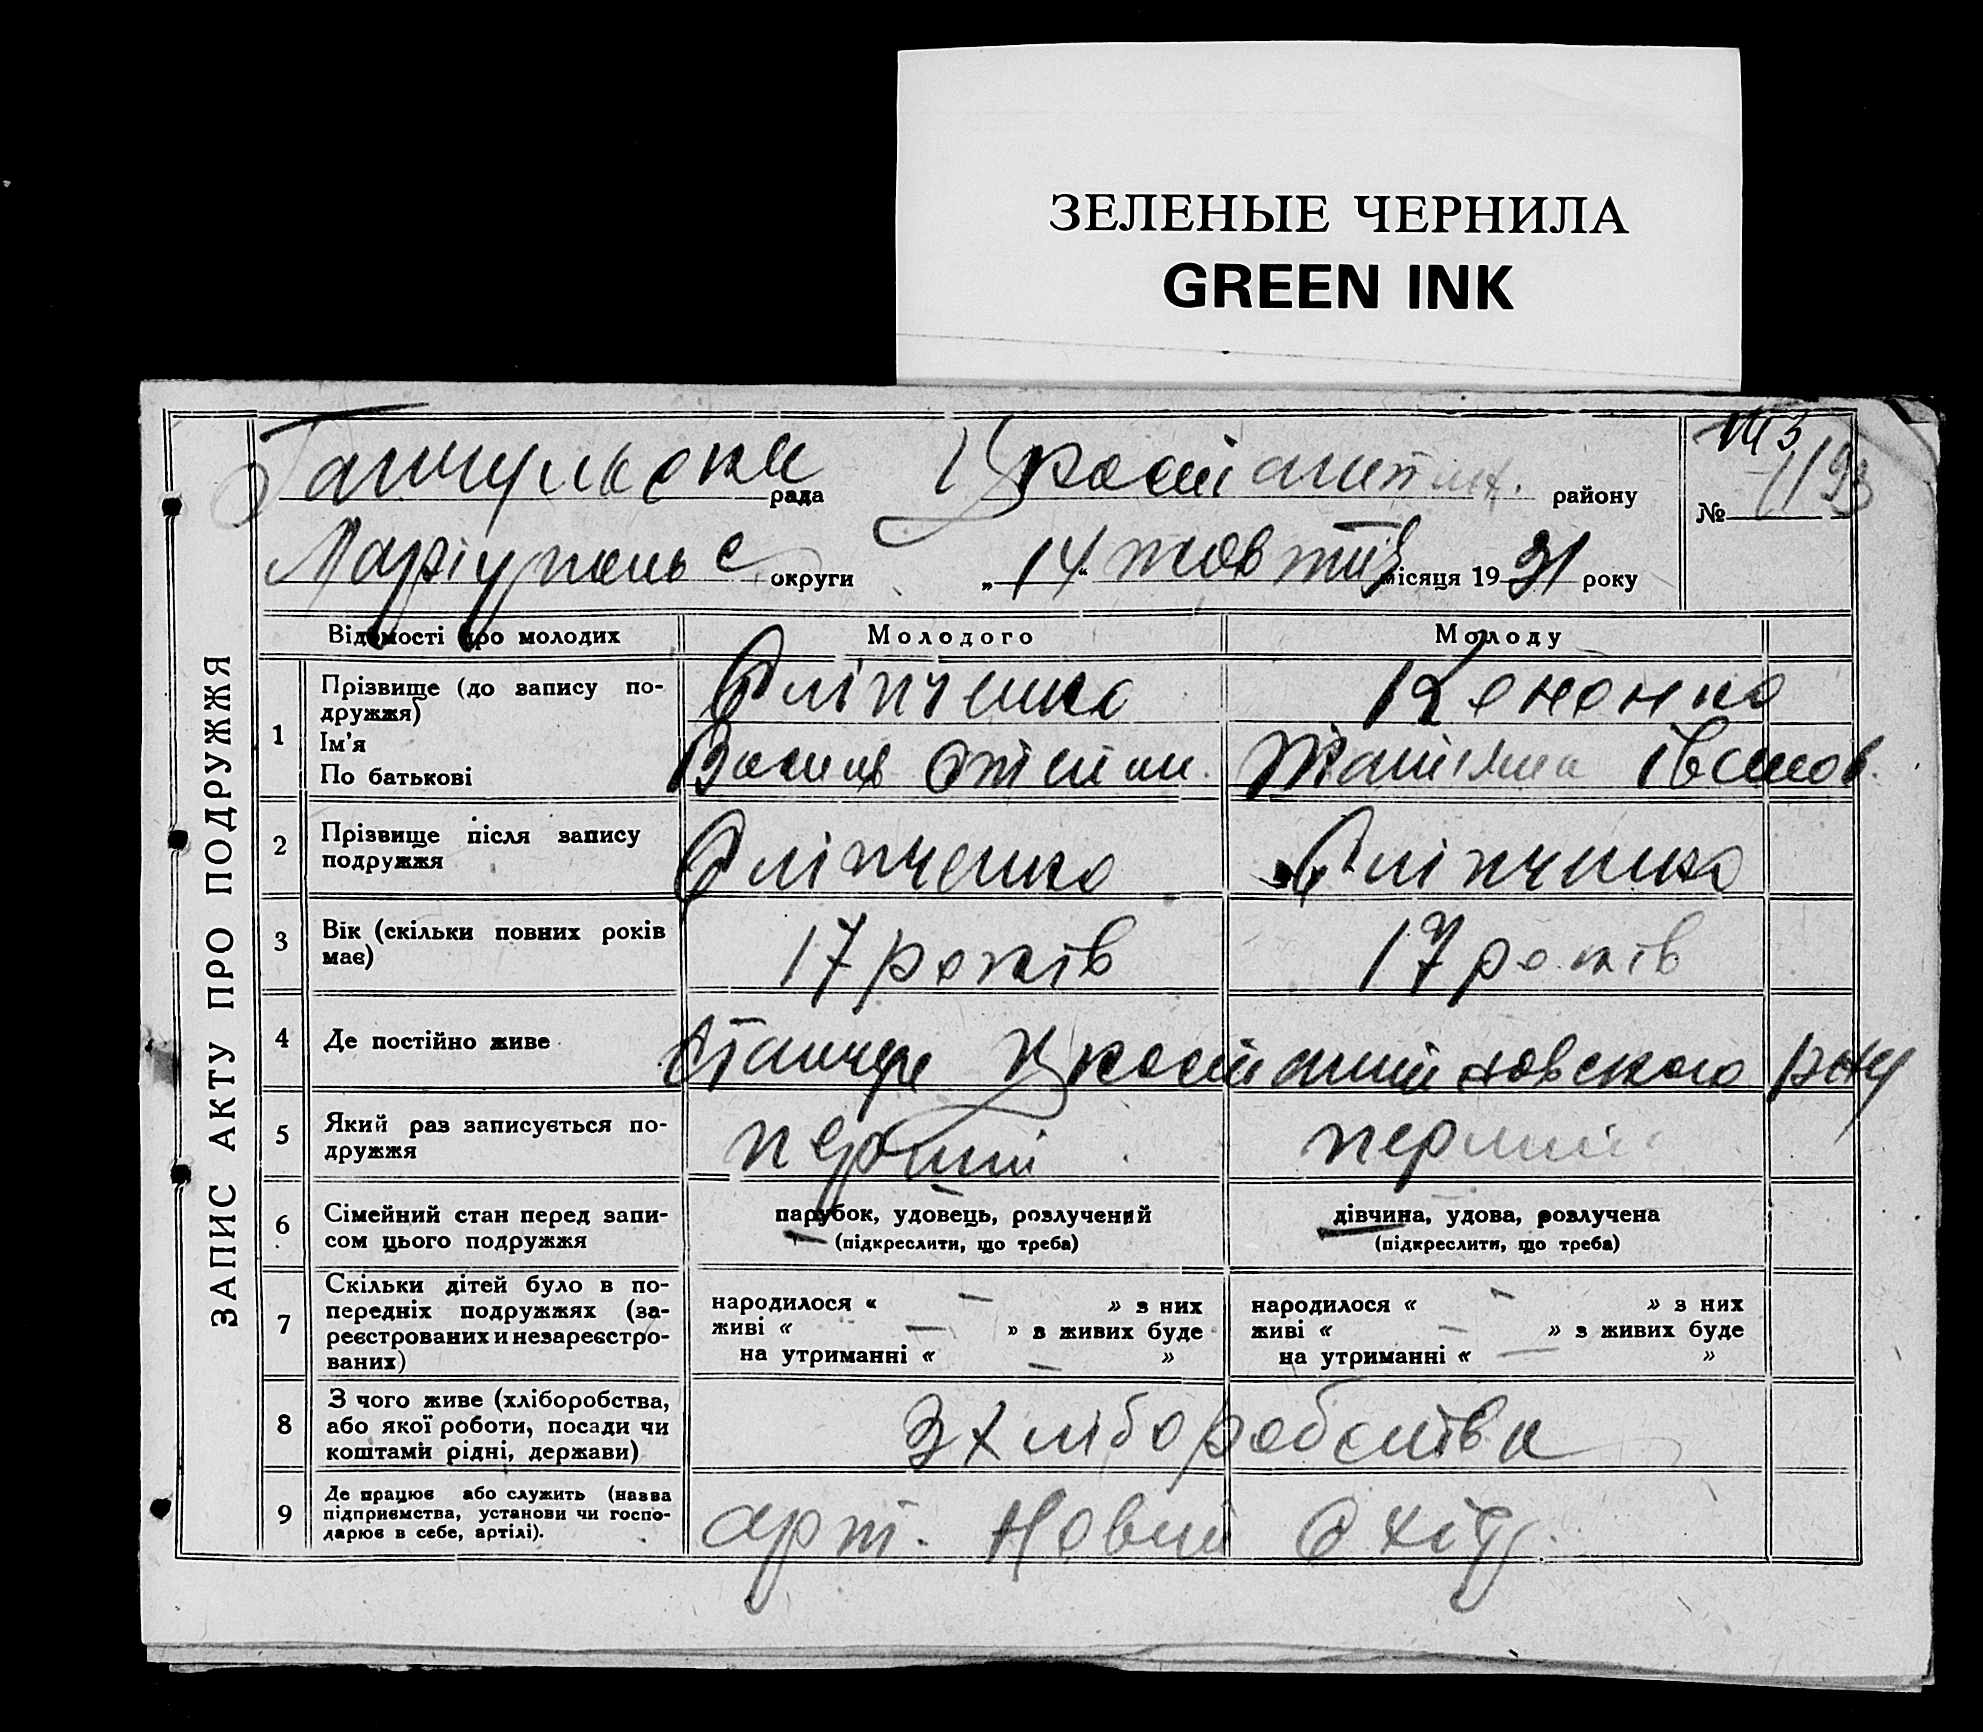 ЗЕЛЕНЫЕ ЧЕРНИЛА
GREEN INK
ЗАПИС АКТУ ПРО ПОДРУЖЖЯ
рада району
№ 1193
Маріупольс округи „14“ жовтня місяця 1931 року
Відомості про молодих Молодого Молоду
1 Прізвище (до запису по-
дружжя)
Ім'я
По батькові
Кононко
2 Прізвище після запису
подружжя
3 Вік (скільки повних років
має)
17 років 17 років
4 Де постійно живе
5 Який раз записується по-
дружжя
перший перший
6 Сімейний стан перед запи-
сом цього подружжя
парубок, удовець, розлучений
(підкреслити, що треба)
дівчина, удова, розлучена
(підкреслити, що треба)
7 Скільки дітей було в по-
передніх подружжях (за-
реєстрованих и незареєстро-
ваних)
народилося « — » з них
живі « — » з живих буде
на утриманні « — »
народилося « — » з них
живі « — » з живих буде
на утриманні « — »
8 З чого живе (хліборобства,
або якої роботи, посади чи
коштами рідні, держави)
З хліборобства
9 Де працює або служить (назва
підприємства, установи чи госпо-
дарює в себе, артілі).
арт. Новий Схід.